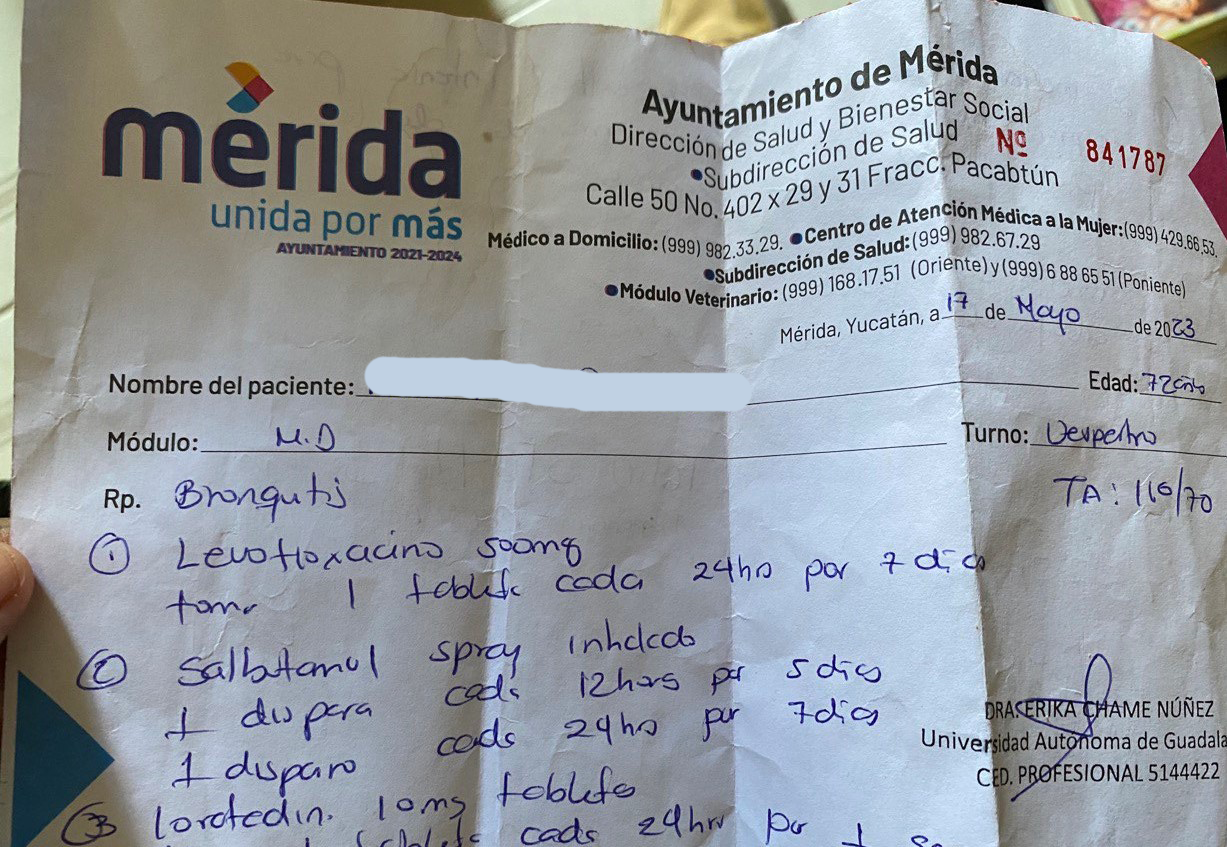 mérida
unida por más
AYUNTAMIENTO 2021-2024
Ayuntamiento de Mérida
Dirección de Salud y Bienestar Social
•Subdirección de Salud
Nº 841787
Calle 50 No. 402 x 29 y 31 Fracc. Pacabtún
Médico a Domicilio: (999) 982.33.29. •Centro de Atención Médica a la Mujer:(999) 429.66.53.
•Subdirección de Salud: (999) 982.67.29
•Módulo Veterinario: (999) 168.17.51 (Oriente) y (999) 6 88 65 51 (Poniente)
Mérida, Yucatán, a 17 de Mayo de 2023
Nombre del paciente:
Edad: 72 año
Módulo: M.D
Turno: Vespertino
Rp. Bronquitis
TA: 110/70
① Levofloxacino 500mg
tomar 1 tableta cada 24hrs por 7 dias
② Salbutamol spray inhalado
1 disparo cada 12hors por 5 dias
1 disparo cada 24hrs por 7dias
③ loratadin. 10mg tableta
tableta cada 24hrs por 1
DRA. ERIKA CHAME NÚÑEZ
Universidad Autónoma de Guadala
CED. PROFESIONAL 5144422